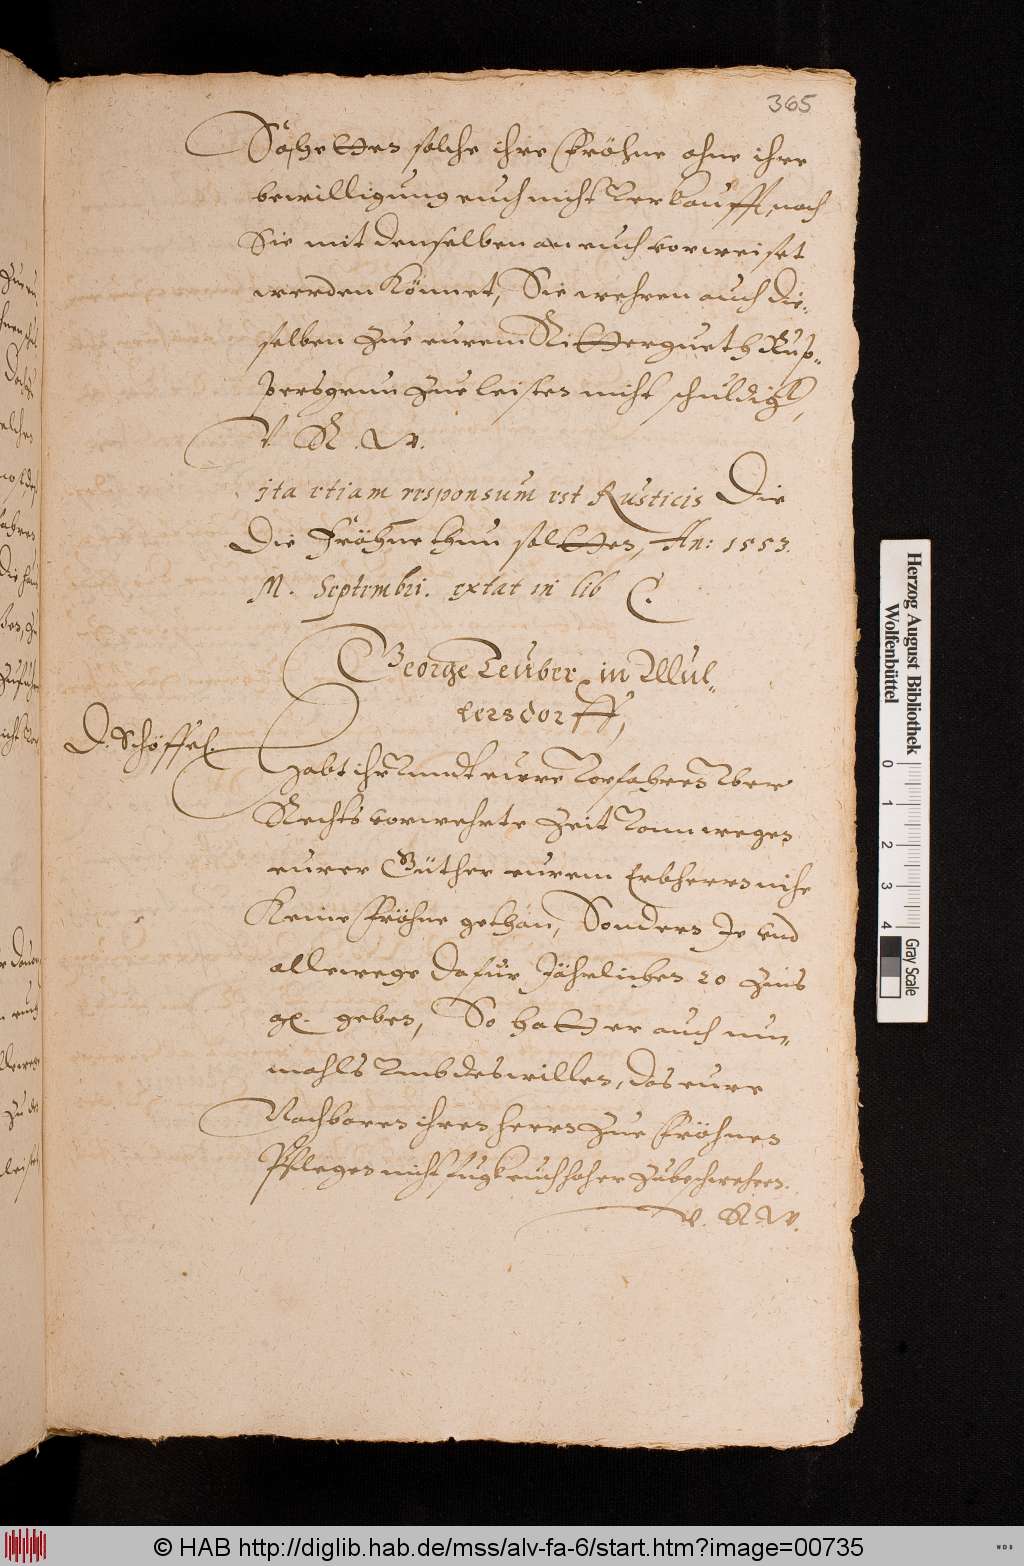 365
So hetten solche ihre Fröhne ohne ihre
bewilligung euch nicht verkaufft, noch
Sie mit denselben an euch vorweiset
werden können, Sie wehren auch die-
selben zue eurem Rittergueth Rup-
persgrun zue leisten nicht schuldig,
V. R. W.
ita etiam responsum est Rusticis Die
Die Fröhne thun solten, An: 1553.
M. Septembri. extat in lib C.
George Teuber in Mul-
lersdorff,
D. Schöffel.
Habt ihr vnndt eure Vorfahren vber
Rechts vorwehrte Zeit vonn wegen
eurer Güther eurem Erbherrn nihe
Keine Fröhne gethan, Sondern Je vnd
allewege dafür Jährlichen 20 Zins
gr. geben, So hatt er auch nun-
mahls vmb des willen, das eure
Nachbaren ihren herrn zue Fröhnen
Pflegen nicht fug euch höher zubeschweren.
V. R. W.
Herzog August Bibliothek
Wolfenbüttel
0 1 2 3 4
Gray Scale
© HAB http://diglib.hab.de/mss/alv-fa-6/start.htm?image=00735